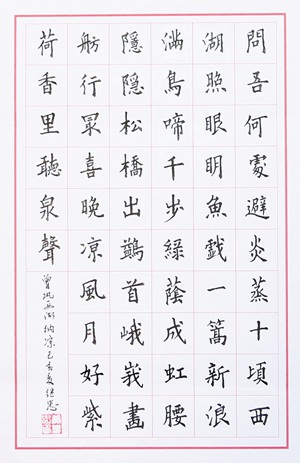 問吾何處避炎蒸十頃西
湖照眼明魚戲一篙新浪
滿鳥啼千步綠蔭成虹腰
隱隱松橋出鷁首峨峩畫
舫行冣喜晚凉風月好紫
荷香里聽泉聲
曾巩西湖纳凉己亥夏